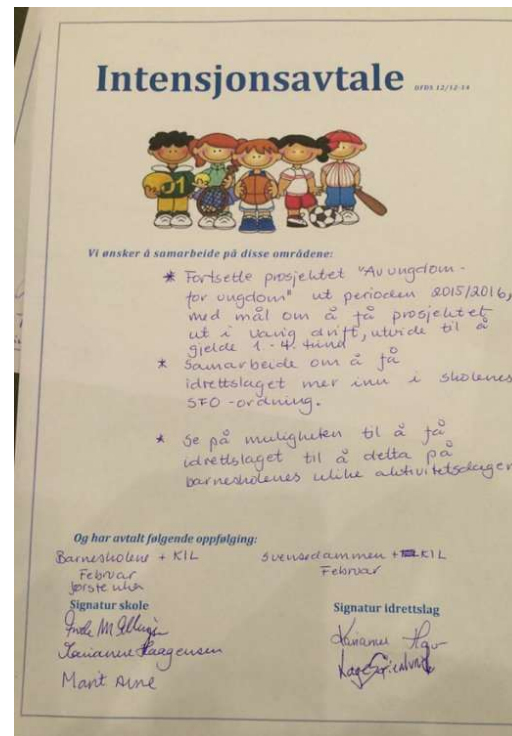 Intensjonsavtale OFDS 12/12-14
01
Vi ønsker å samarbeide på disse områdene:
* Fortsette prosjektet "Av ungdom -
for ungdom" ut perioden 2015/2016,
med mål om å få prosjektet
ut i varig drift, utvide til å
gjelde 1 - 4. trinn
* Samarbeide om å få
idrettslaget mer inn i skolenes
SFO - ordning.
* Se på muligheten til å få
idrettslaget til å delta på
barneskolenes ulike aktivitetsdager
Og har avtalt følgende oppfølging:
Barneskolene + KIL
Februar
første uka
Svensedammen + KIL
Februar
Signatur skole
Signatur idrettslag
Marianne Haagensen
Marit Arne